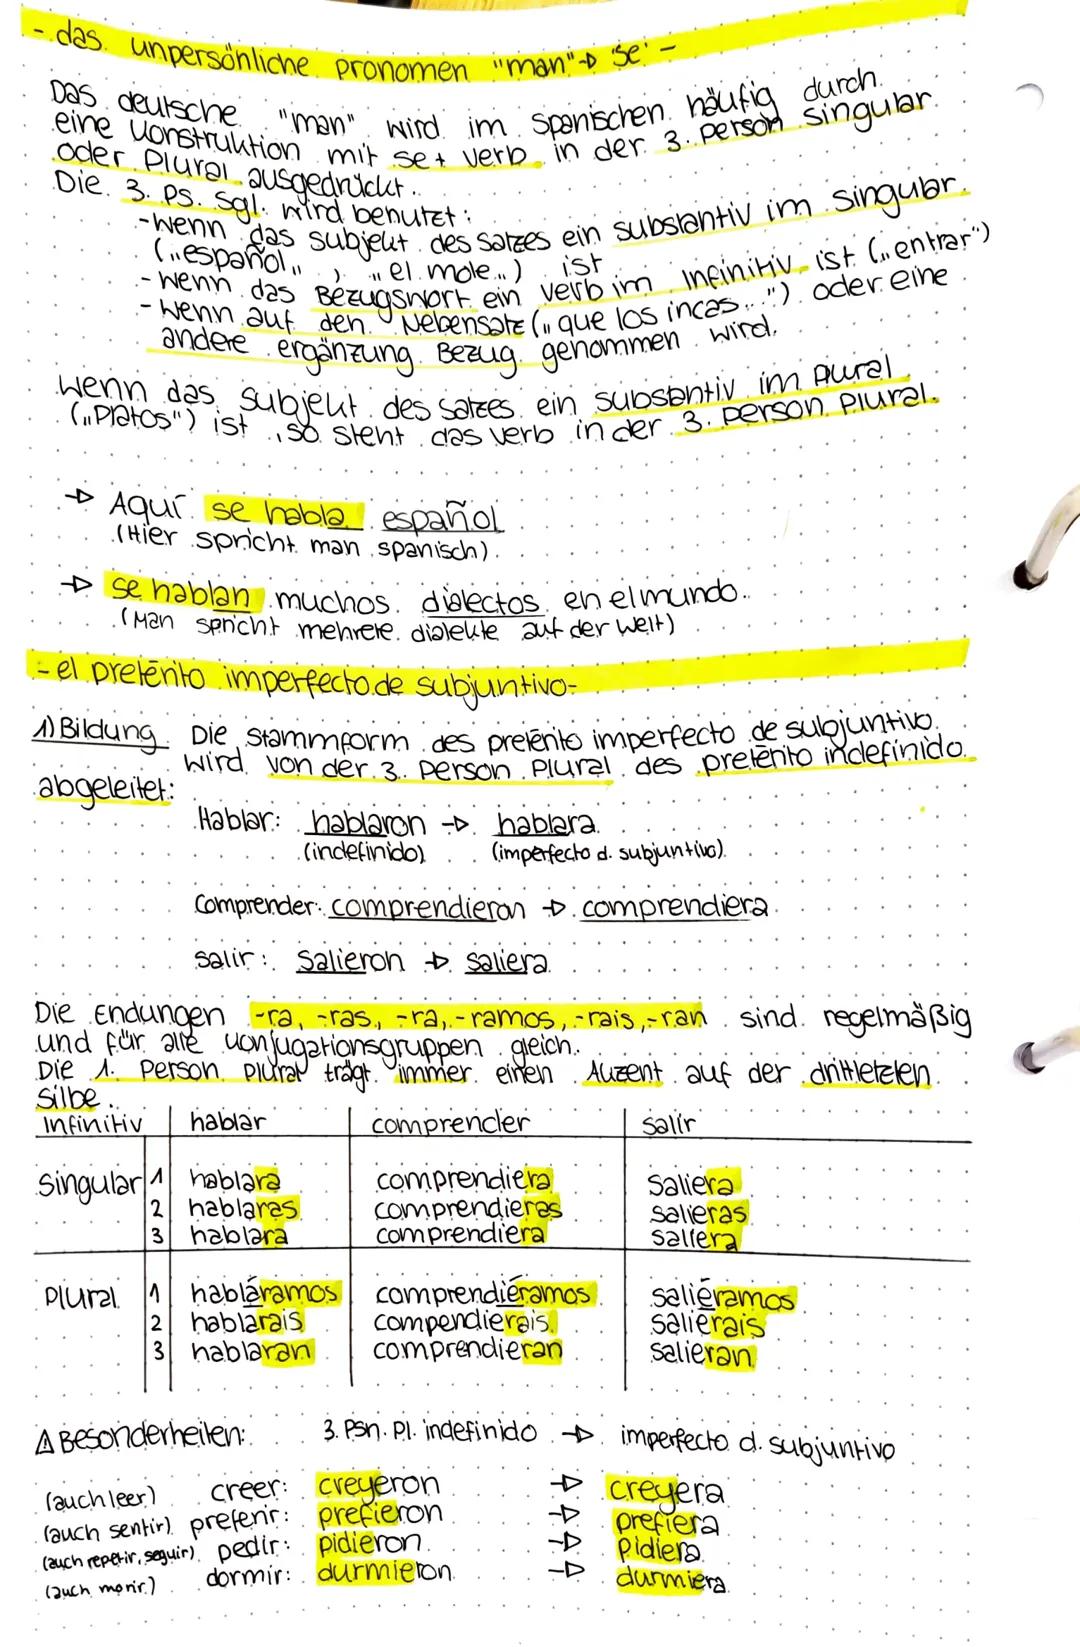 - das unpersönliche pronomen "man" → 'se' -
Das deutsche "man" wird im Spanischen häufig durch
eine Konstruktion mit se + verb in der 3. Person Singular
oder Plural ausgedrückt.
Die 3. Ps. Sgl. wird benutzt:
-wenn das subjekt des Satzes ein substantiv im Singular
("español", "el mole") ist
- wenn das Bezugswort ein verb im Infinitiv ist ("entrar")
- wenn auf den Nebensatz ("que los incas...") oder eine
andere ergänzung Bezug genommen wird.
Wenn das subjekt des Satzes ein substantiv im Plural
("Platos") ist, so steht das verb in der 3. Person Plural.
→ Aquí se habla español
(Hier spricht man spanisch)
→ Se hablan muchos dialectos en el mundo.
(Man spricht mehrere dialekte auf der Welt)
- el pretérito imperfecto de subjuntivo -
1) Bildung Die Stammform des pretérito imperfecto de subjuntivo
wird von der 3. Person Plural des pretérito indefinido
abgeleitet:
Hablar: hablaron → hablara
(indefinido) (imperfecto d. subjuntivo)
Comprender: comprendieron → comprendiera
salir: Salieron → saliera
Die Endungen -ra, -ras, -ra, -ramos, -rais, -ran sind regelmäßig
und für alle Konjugationsgruppen gleich.
Die 1. Person Plural trägt immer einen Akzent auf der drittletzten
Silbe.
Infinitiv hablar comprender salir
Singular 1 hablara comprendiera Saliera
2 hablaras comprendieras salieras
3 hablara comprendiera saliera
Plural 1 habláramos comprendiéramos saliéramos
2 hablarais compendierais salierais
3 hablaran comprendieran salieran
⚠ Besonderheiten: 3. Psn. Pl. indefinido → imperfecto d. subjuntivo
(auch leer) creer: creyeron → creyera
(auch sentir) preferir: prefieron → prefiera
(auch repetir, seguir) pedir: pidieron → pidiera
(auch morir) dormir: durmieron → durmiera